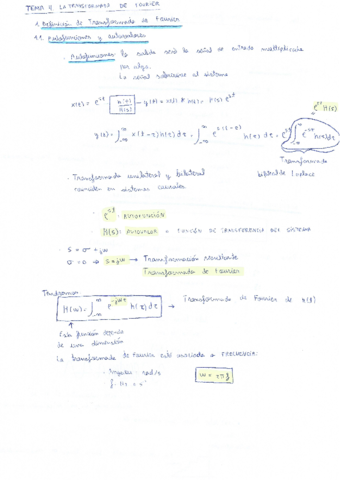 TEMA 4: LA TRANSFORMADA DE FOURIER
1. Definición de Transformada de Fourier
1.1. Autofunciones y autovalores
· Autofunciones: la salida será la señal de entrada multiplicada
por algo.
La señal sobrevive al sistema
x(t) = e^{st} h(t) H(s) → y(t) = x(t) * h(t) = H(s) e^{st}
e^{st} H(s)
y(t) = ∫_{-∞}^{∞} x(t-τ) h(τ) dτ = ∫_{-∞}^{∞} e^{s(t-τ)} h(τ) dτ = e^{st} ∫_{-∞}^{∞} e^{-sτ} h(τ) dτ
Transformada
bilateral de Laplace
· Transformada unilateral y bilateral
coinciden en sistemas causales
· e^{st}: AUTOFUNCIÓN
· H(s): AUTOVALOR = FUNCIÓN DE TRANSFERENCIA DEL SISTEMA
· s = σ + jω
σ = 0 → s = jω → Transformación resultante
Transformada de Fourier
Tendremos:
H(ω) = ∫_{-∞}^{∞} e^{-jωτ} h(τ) dτ → Transformada de Fourier de h(t)
Esta función depende
de una dimensión
La transformada de Fourier está asociada a FRECUENCIA:
ω = 2πf